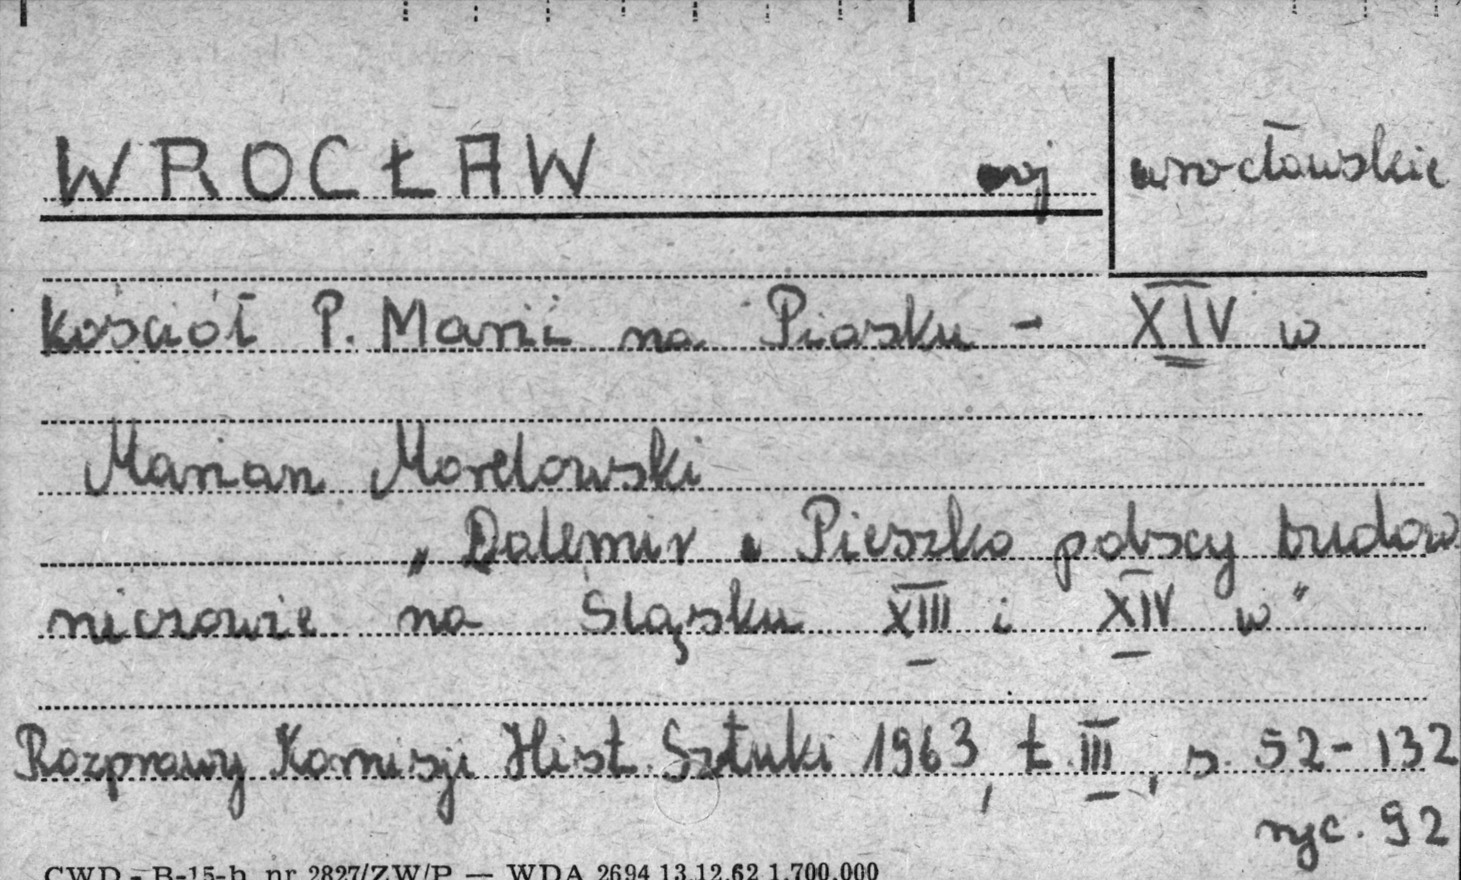 WROCŁAW woj wrocławskie
kościół P. Marii na Piasku - XIV w
Marian Morelowski
„Dalemir i Pieszko polscy budow
niczowie na Śląsku XIII i XIV w"
Rozprawy Komisji Hist. Sztuki 1963, t. III, s. 52-132
ryc. 92
CWD - B-15-b nr 2827/ZW/P — WDA 2694 13.12.62 1.700.000